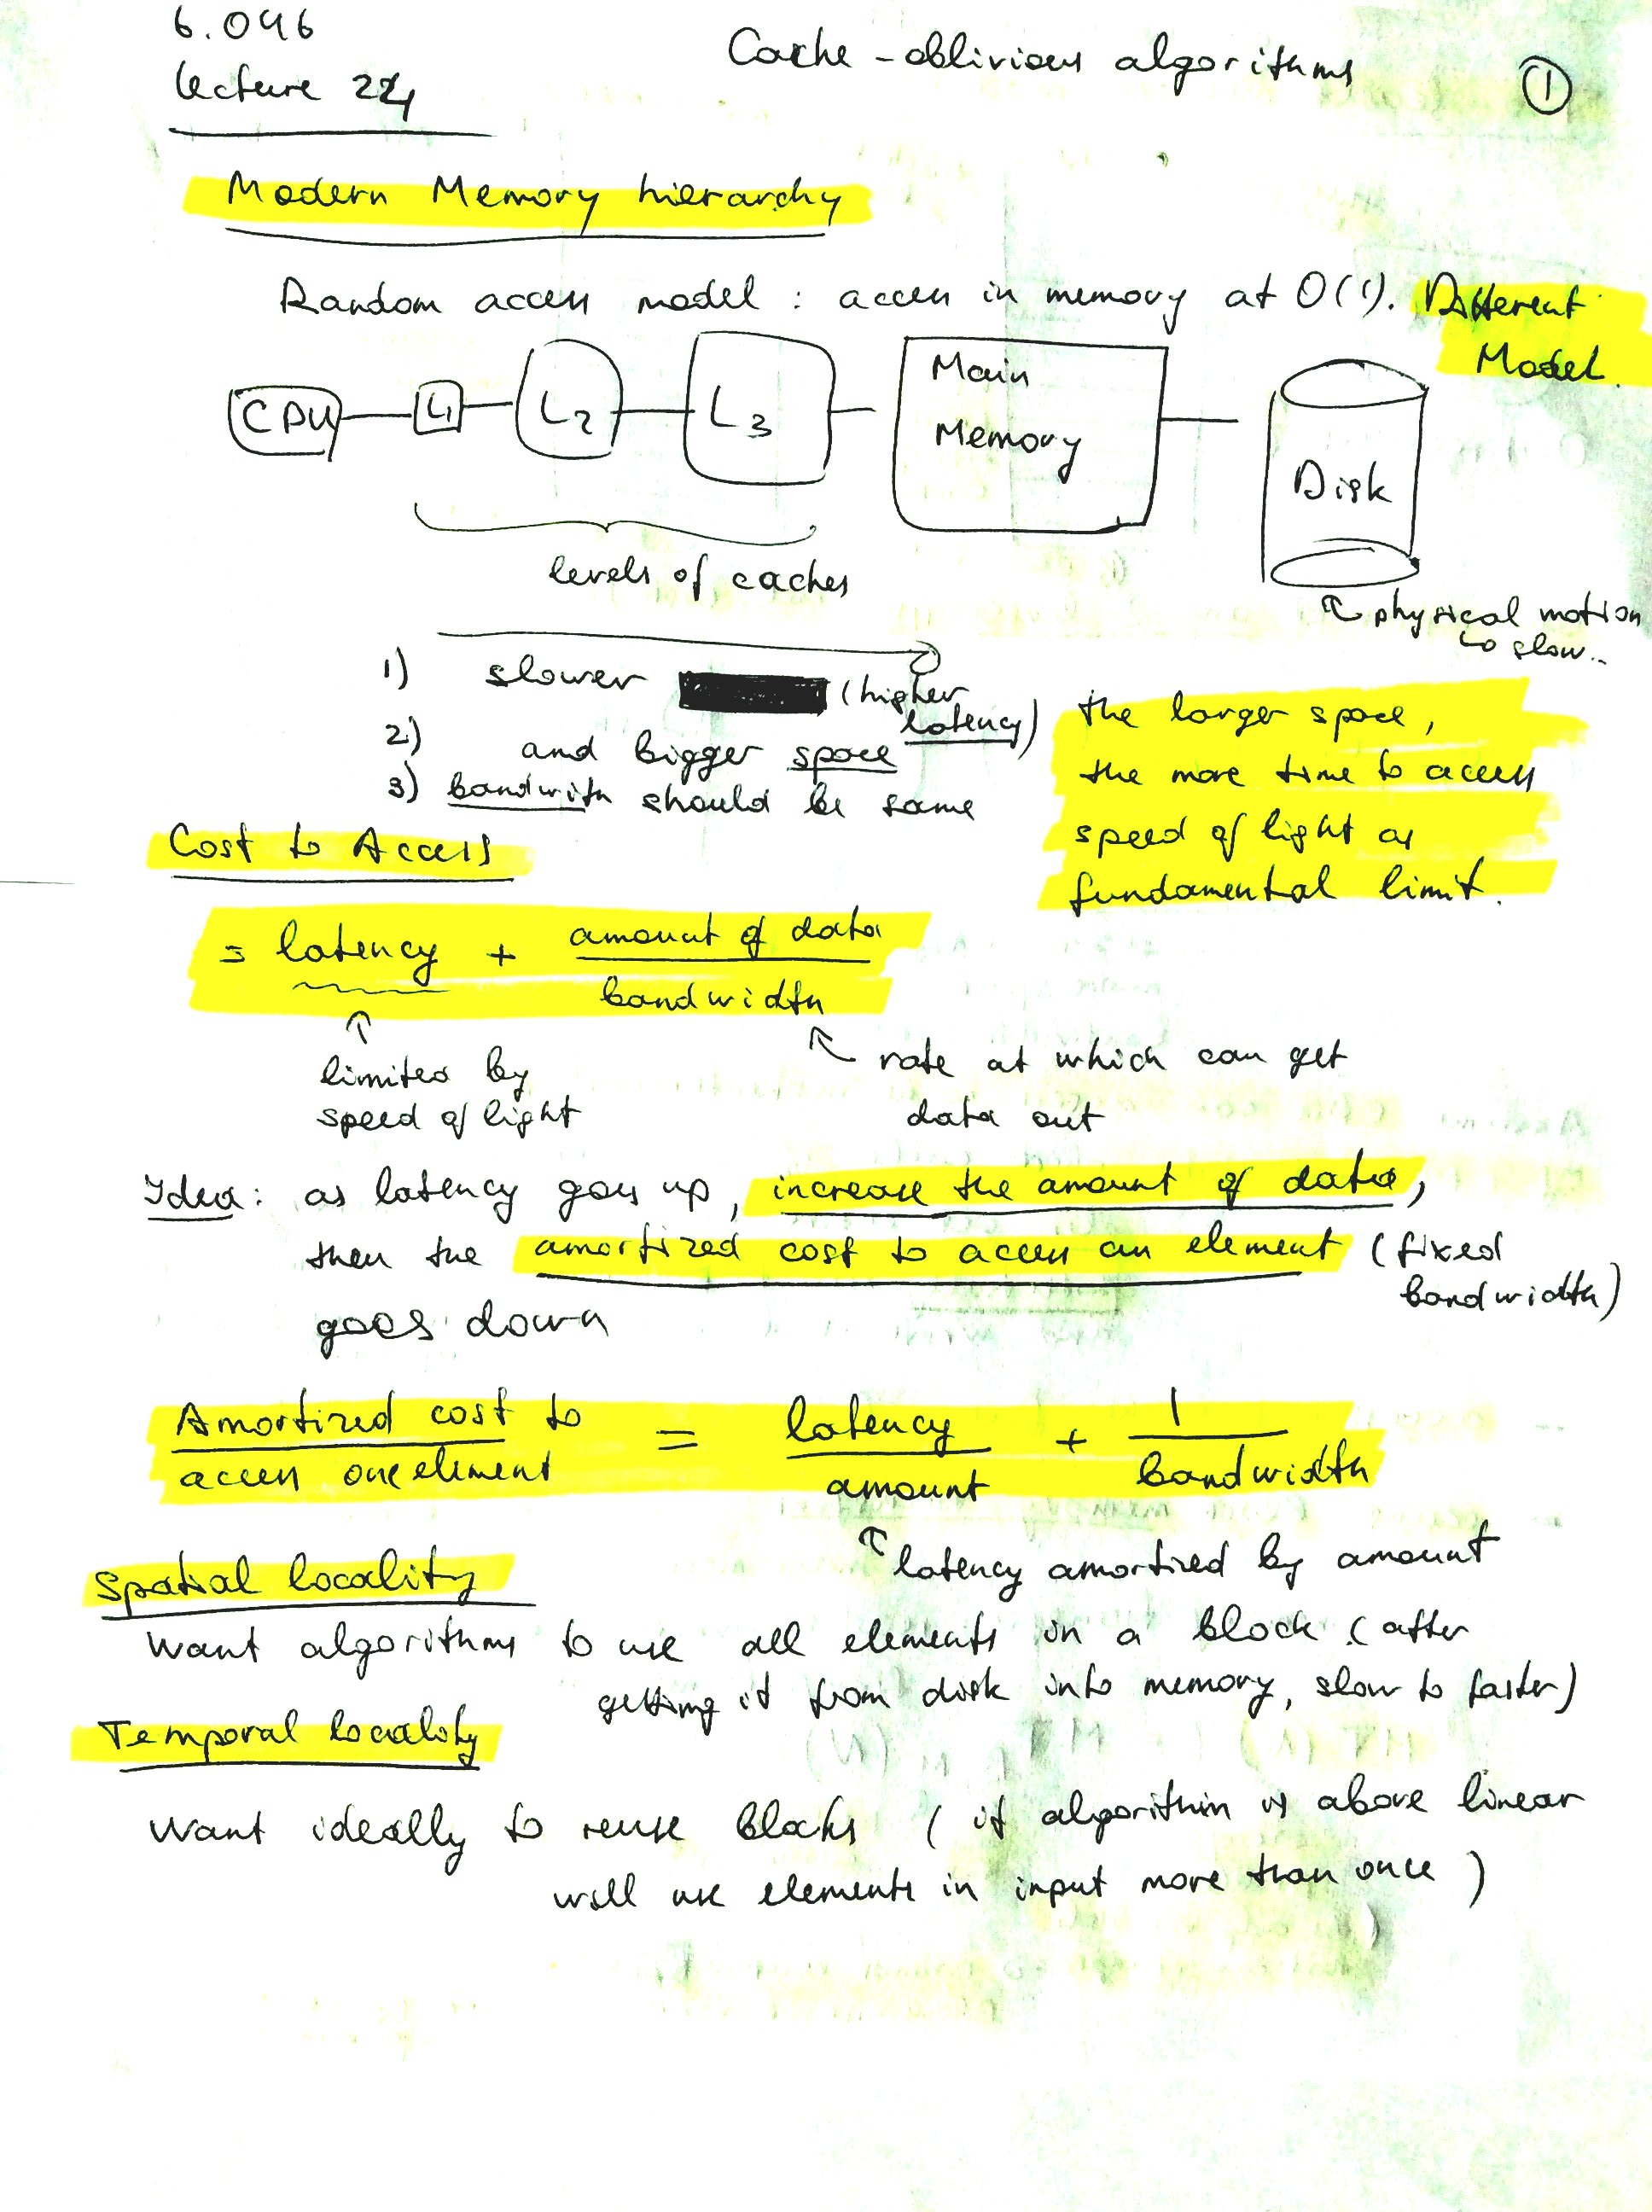 6.046
Cache-oblivious algorithms
1
lecture 24
Modern Memory hierarchy
Random access model : access in memory at O(1). Different
Model.
CPU L1 L2 L3 Main Memory Disk
levels of caches
physical motion
↳ slow..
1) slower (higher latency)
2) and bigger space
3) bandwith should be same
the larger space,
the more time to access
speed of light as
fundamental limit.
Cost to Access
= latency + amount of data / bandwidth
↑ limited by
speed of light
↖ rate at which can get
data out
Idea: as latency goes up, increase the amount of data,
then the amortized cost to access an element (fixed
bandwidth)
goes down
Amortized cost to
access one element = latency / amount + 1 / bandwidth
↖ latency amortized by amount
Spatial locality
Want algorithms to use all elements in a block (after
getting it from disk into memory, slow to faster)
Temporal locality
Want ideally to reuse blocks (if algorithm is above linear
will use elements in input more than once)